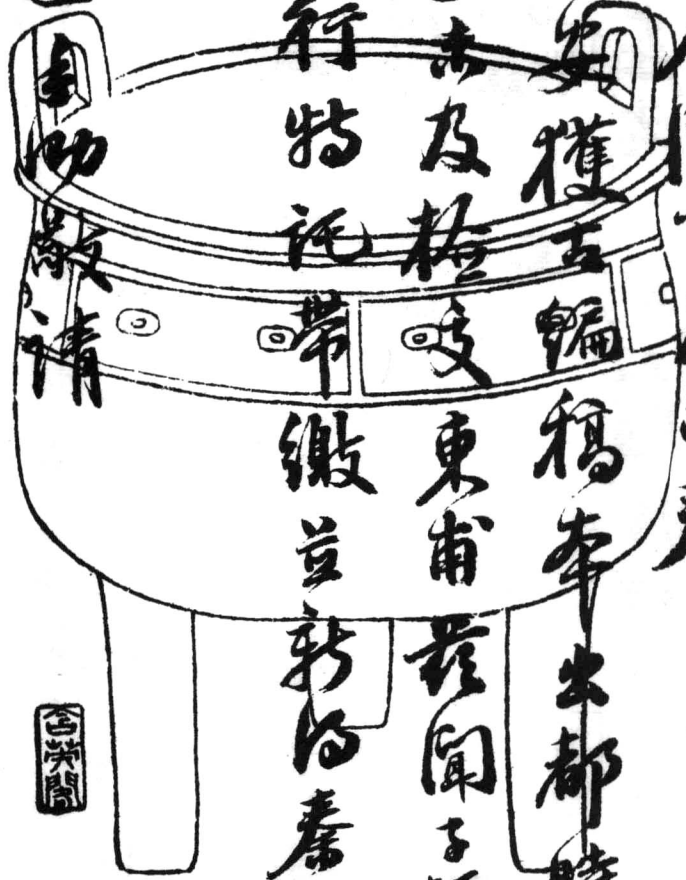 安獲古編稿本出都時
未及檢交東甫發聞子
行特託帶繳並新得秦
助敬請
含英閣